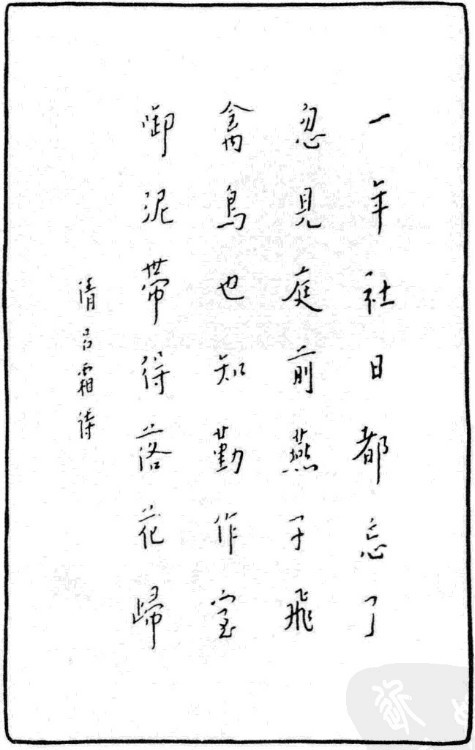 一年社日都忘了
忽見庭前燕子飛
禽鳥也知勤作室
啣泥帶得落花歸
清吕霜詩